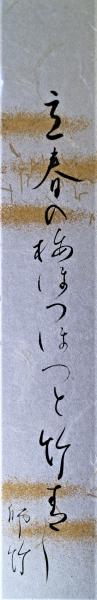 立春の梅ほつほつと竹青し
師竹